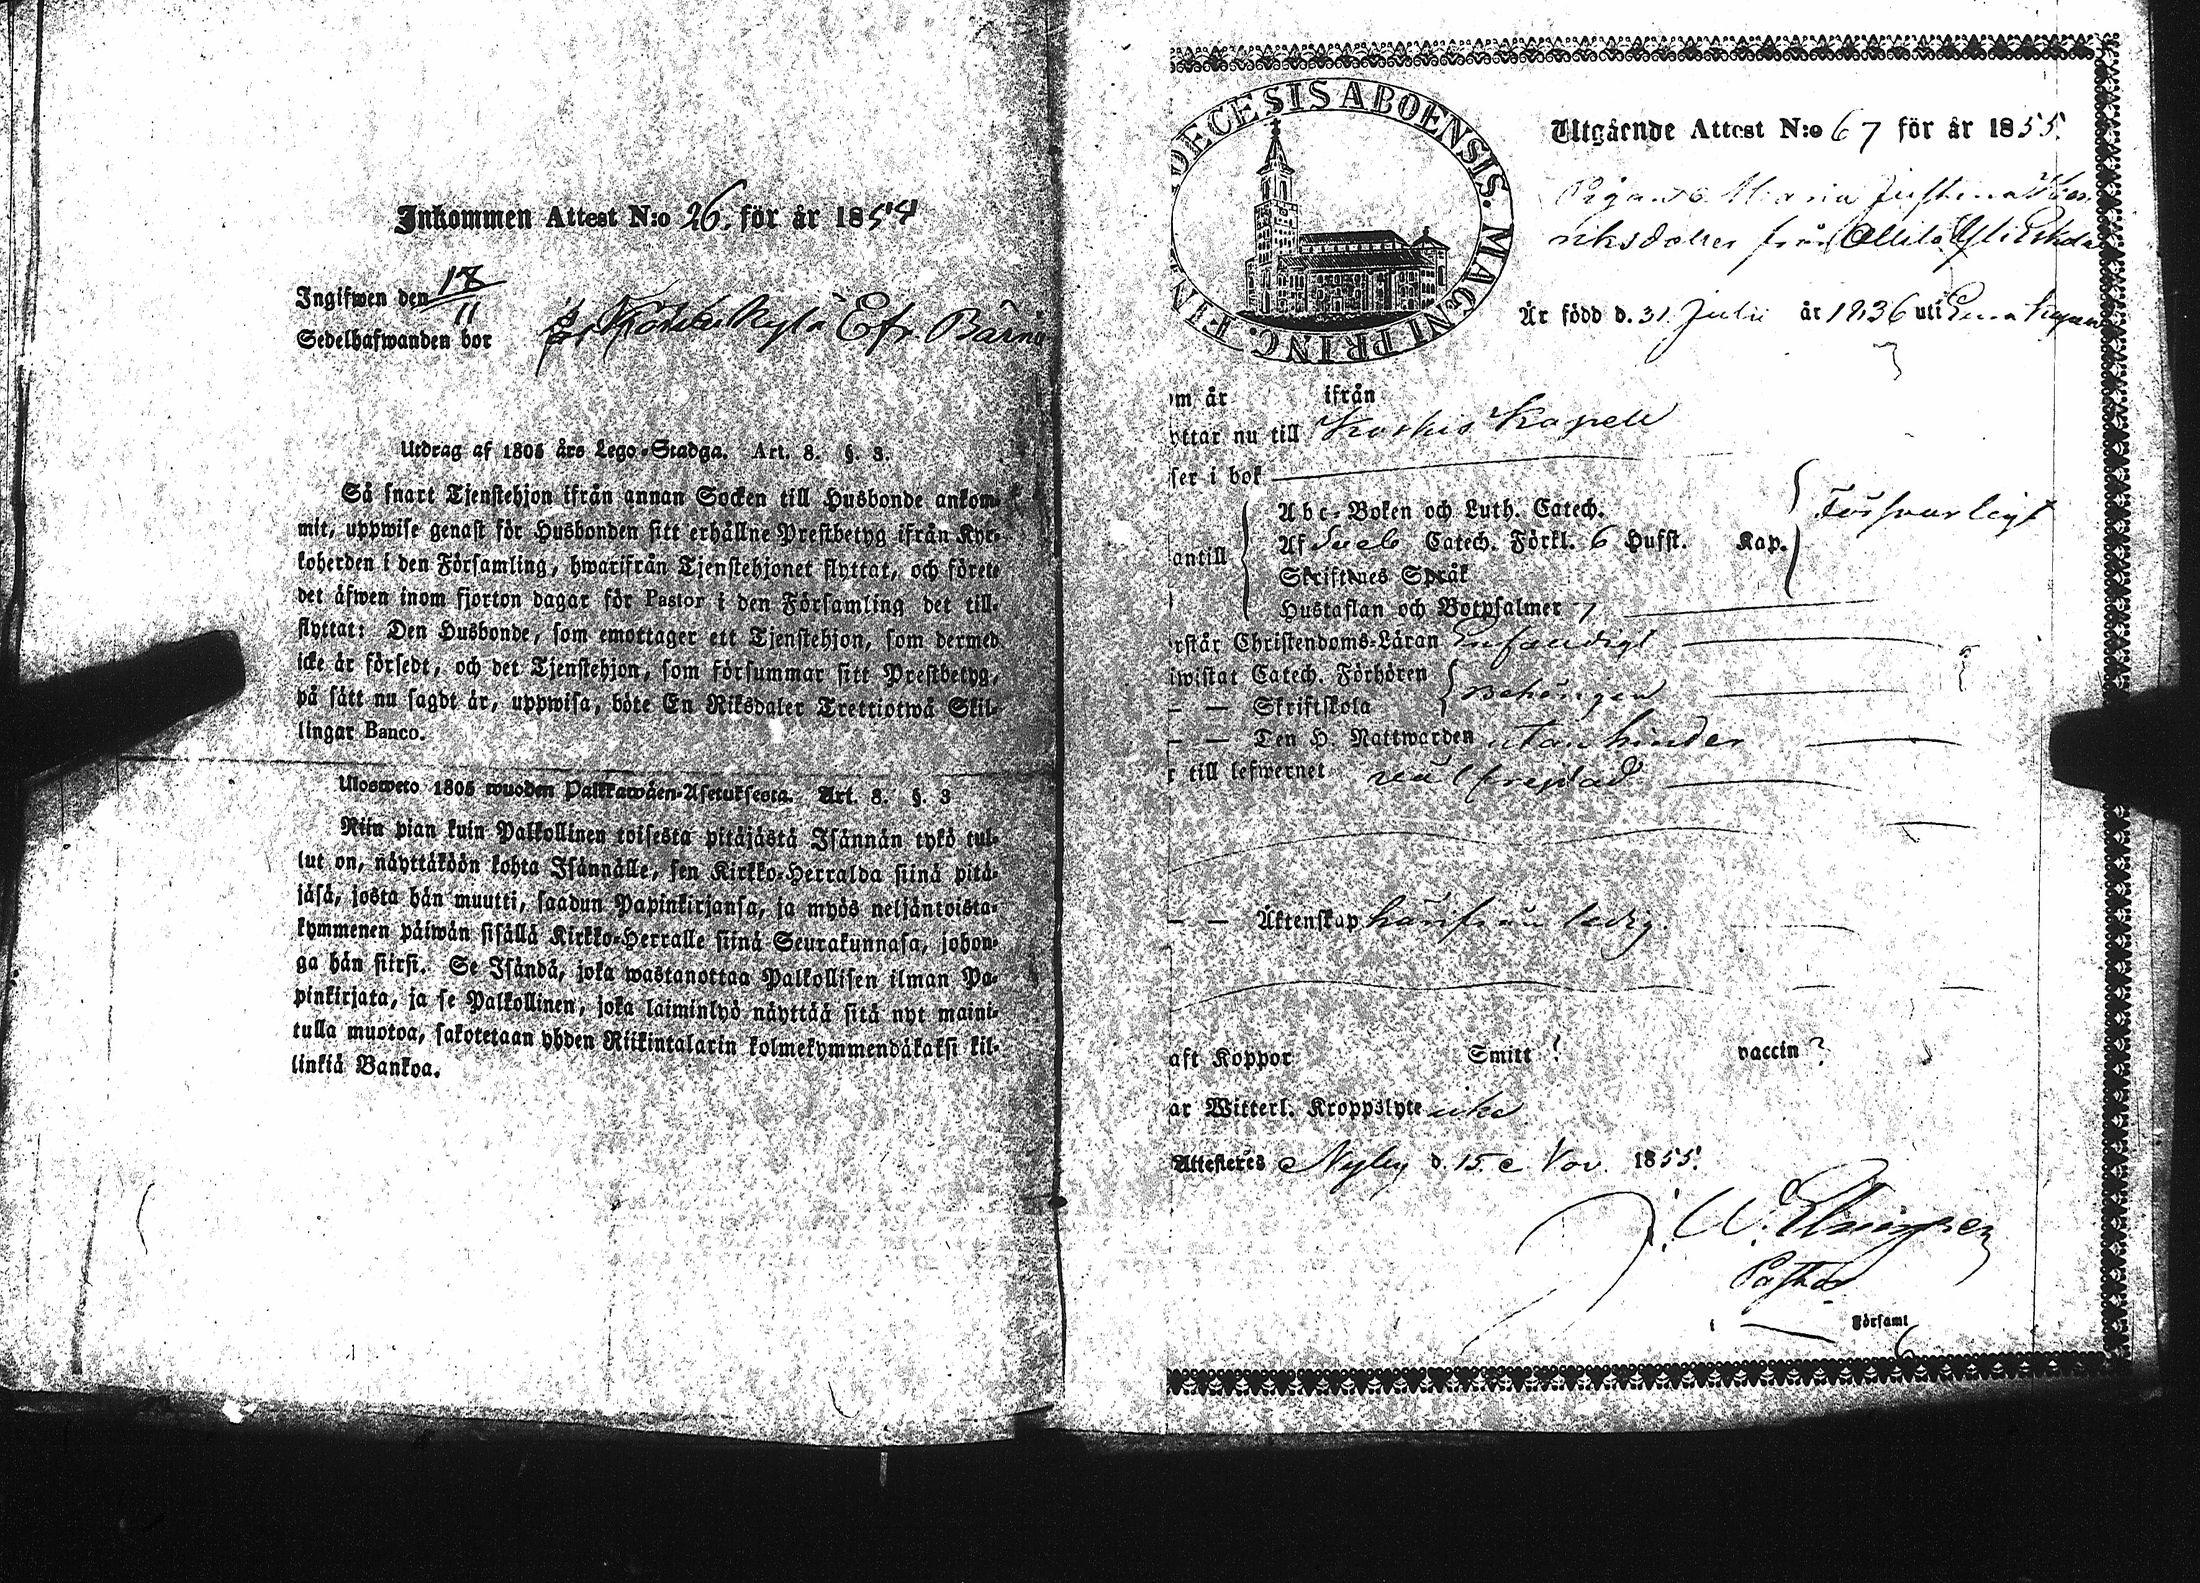 Inkommen Attest N:o 26. för år 1854
Ingifwen den 17/11
Sedelhafwanden bor Efr.
Utdrag af 1805 års Lego-Stadga. Art. 8. §. 3.
Så snart Tjenstehjon ifrån annan Socken till Husbonde ankom-
mit, uppwise genast för Husbonden sitt erhållne Prestbetyg ifrån Kyr-
koherden i den Församling, hwarifrån Tjenstehjonet flyttat, och förete
det äfwen inom fjorton dagar för Pastor i den Församling det till-
flyttat: Den Husbonde, som emottager ett Tjenstehjon, som dermed
icke är försedt, och det Tjenstehjon, som försummar sitt Prestbetyg,
på sätt nu sagdt är, uppwisa, böte En Riksdaler Trettiotwå Skil-
lingar Banco.
Ulosweto 1805 wuoden Palkkawäen-Asetuksesta. Art. 8. §. 3
Niin pian kuin Palkollinen toisesta pitäjästä Isännän tykö tul-
lut on, näyttäköön kohta Isännälle, sen Kirkko-Herralda siinä pitä-
jäsä, josta hän muutti, saadun Papinkirjansa, ja myös neljäntoista-
kymmenen päiwän sisällä Kirkko-Herralle siinä Seurakunnasa, johon-
ga hän siirsi. Se Isändä, joka wastanottaa Palkollisen ilman Pa-
pinkirjata, ja se Palkollinen, joka laiminlyö näyttää sitä nyt maini-
tulla muotoa, sakotetaan yhden Riikintalarin kolmekymmendäkaksi kil-
linkiä Bankoa.
DECESIS ABOENSIS. MAGNI PRINC. FIN
Utgående Attest N:o 67 för år 1855.
Pigan Maria Justina Hen
riksdotter från Ollila
Är född d. 31 Julii år 1836 uti
om år ifrån
yttar nu till Koskis Kapell
ser i bok
Abc-Boken och Luth. Catech.
antill Af Sveb Catech. Förkl. 6 Hufst. Kap. Försvarligt
Skriftenes Språk
Hustaflan och Botpsalmer 7
rstår Christendoms-Läran Enfaldigt
iwistat Catech. Förhören
— — Skriftskola Behörigen
— — Ten H. Nattwarden utan hinder
r till lefwernet väl frejdad
— — Äktenskap härifrån ledig.
aft Koppor Smitt ! vaccin ?
ar Witterl. Kroppslyte icke
Attesteres Nyby d. 15 Nov. 1855.
J. W.
Pastor
i Församl